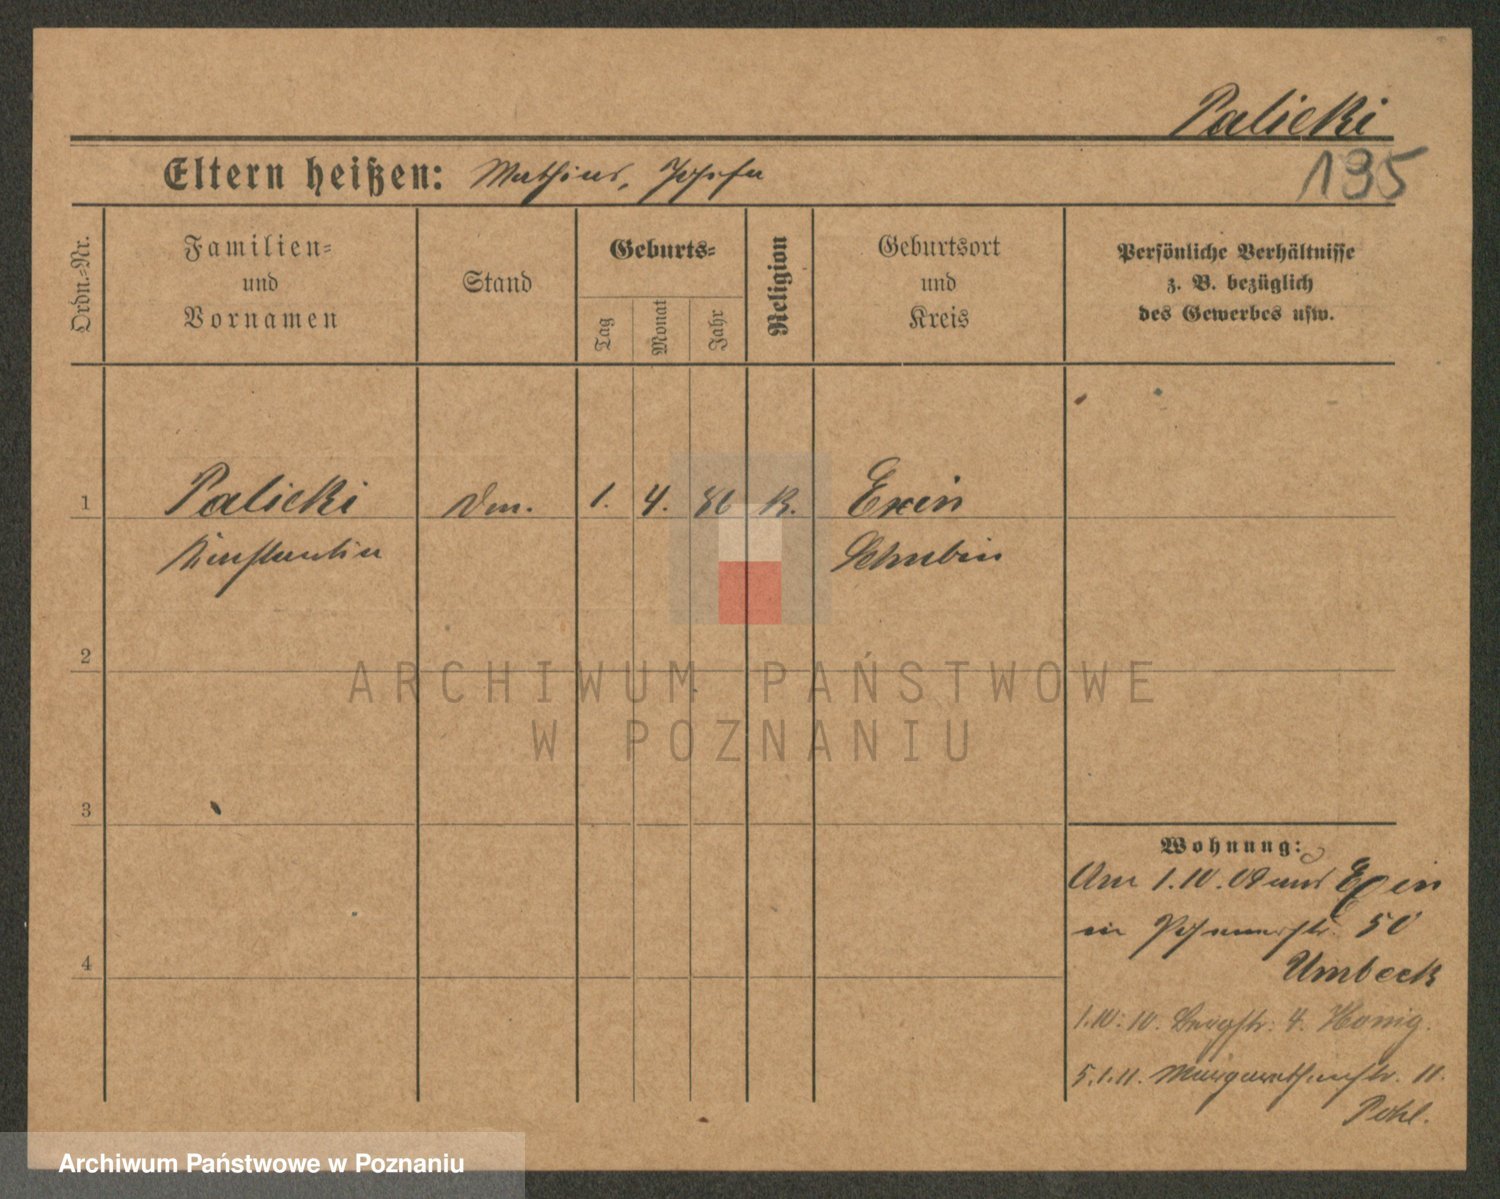 Palicki
195
Eltern heißen: Mathias, Josefa
Ordn.-Nr.
Familien-
und
Vornamen
Stand
Geburts-
Tag
Monat
Jahr
Religion
Geburtsort
und
Kreis
Persönliche Verhältnisse
z. B. bezüglich
des Gewerbes usw.
1 Palicki 1. 4. 86 K. Exin
Konstantin Schubin
2
3
4
Wohnung:
Am 1.10.09 aus Exin
in Posenerstr. 50
Umbeck
1.10.10. Bergstr. 4. Honig.
5.1.11. Margarethenstr. 11.
Pohl.
ARCHIWUM PAŃSTWOWE
W POZNANIU
Archiwum Państwowe w Poznaniu